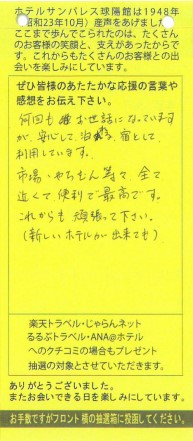 ホテルサンパレス球陽館は1948年
(昭和23年10月) 産声をあげました。
ここまで歩んでこられたのは、たくさん
のお客様の笑顔と、支えがあったからで
す。これからもたくさんのお客様との出
会いを楽しみにしています。
ぜひ皆様のあたたかな応援の言葉や
感想をお伝え下さい。
何回も お世話になっています
が、安心して泊まれる宿として
利用しています。
市場・やちむん等々、全て
近くて便利で最高です。
これからも頑張って下さい。
(新しいホテルが出来ても)
楽天トラベル・じゃらんネット
るるぶトラベル・ANA@ホテル
へのクチコミの場合もプレゼント
抽選の対象とさせていただきます。
ありがとうございました。
またお会いできる日を楽しみにしています。
お手数ですがフロント横の抽選箱に投函してください。